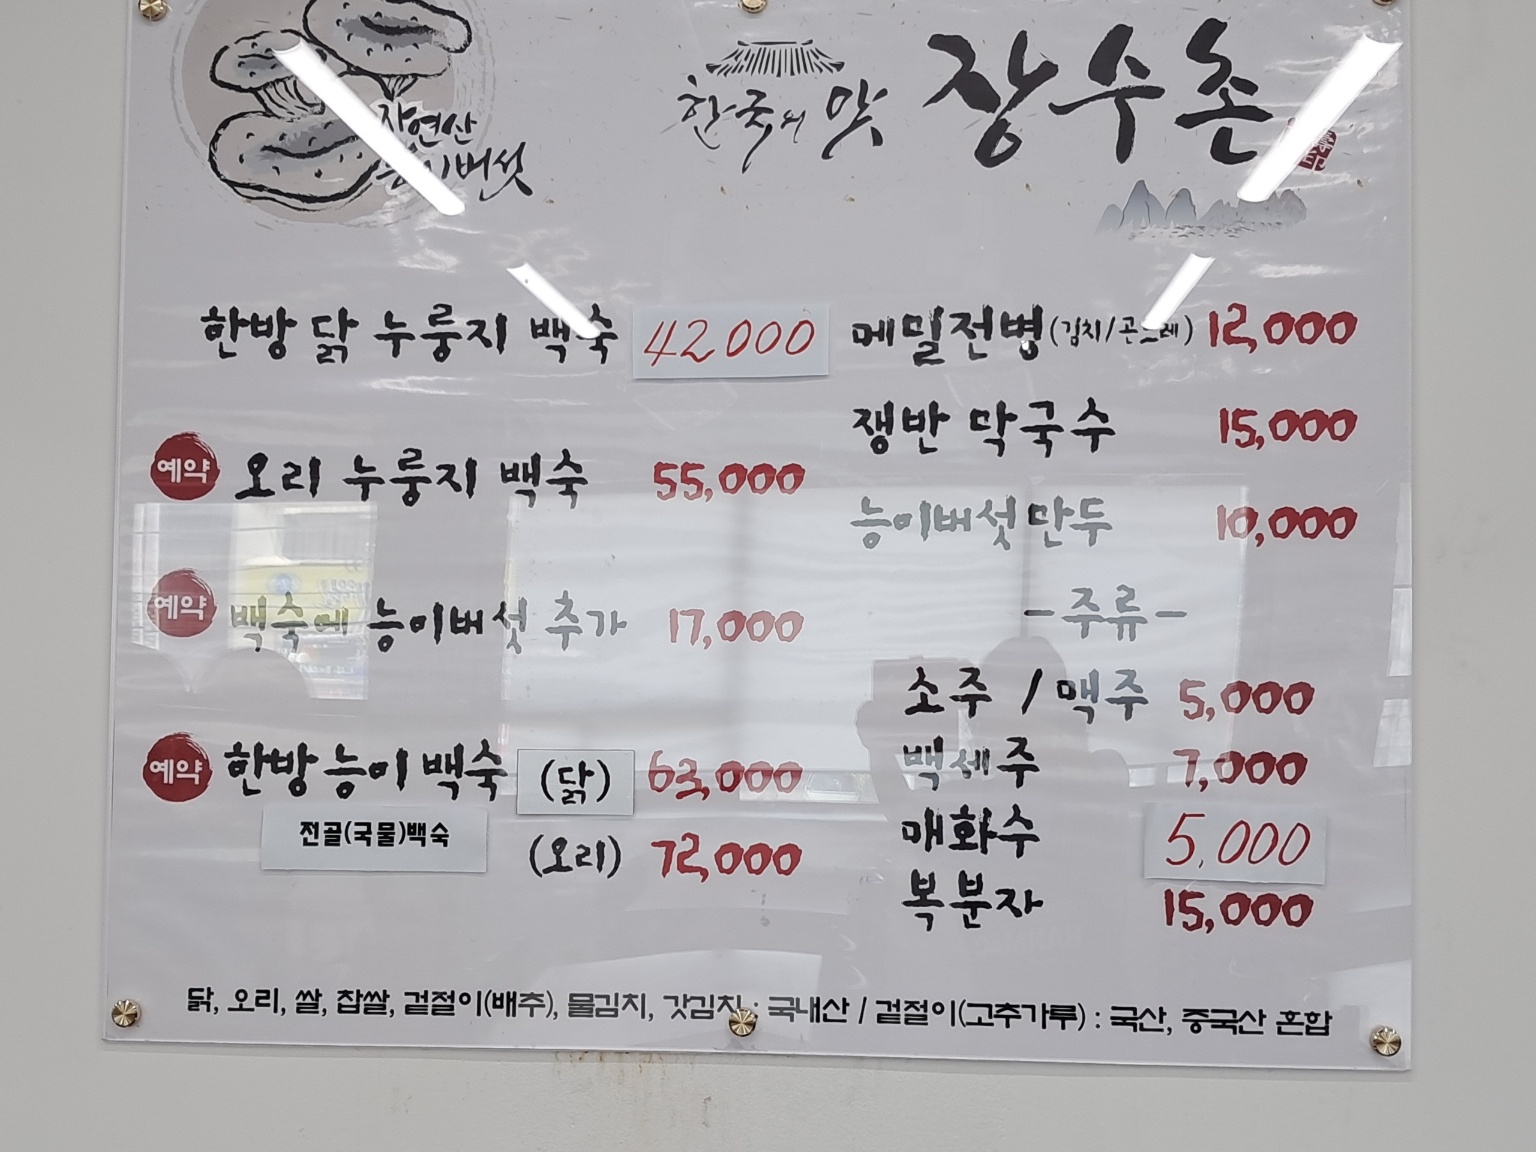 자연산
능이버섯
한국의 맛 장수촌
한방 닭 누룽지 백숙 42000
예약 오리 누룽지 백숙 55,000
예약 백숙에 능이버섯 추가 17,000
예약 한방 능이 백숙 (닭) 63,000
전골(국물)백숙
(오리) 72,000
메밀전병(김치/곤드레) 12,000
쟁반 막국수 15,000
능이버섯 만두 10,000
-주류-
소주 / 맥주 5,000
백세주 7,000
매화수 5,000
복분자 15,000
닭, 오리, 쌀, 찹쌀, 겉절이(배추), 물김치, 갓김치 : 국내산 / 겉절이(고추가루) : 국산, 중국산 혼합